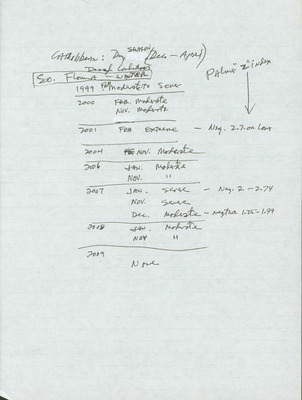 Caribbean: Dry season (Dec - April)
Drought Conditions
So. Florida - WINTER
Palmer "Z" index
1999 Moderate to Sever
2000 FEB. Moderate
NOV. Moderate
2001 FEB Extreme - Neg. 2.7 or Less
2004 NOV. Moderate
2006 JAN. Moderate
NOV. "
2007 JAN. Severe - Neg. 2 - 2.74
NOV. Severe
Dec. Moderate - negative 1.25-1.99
2008 JAN. Moderate
NOV "
2009
None